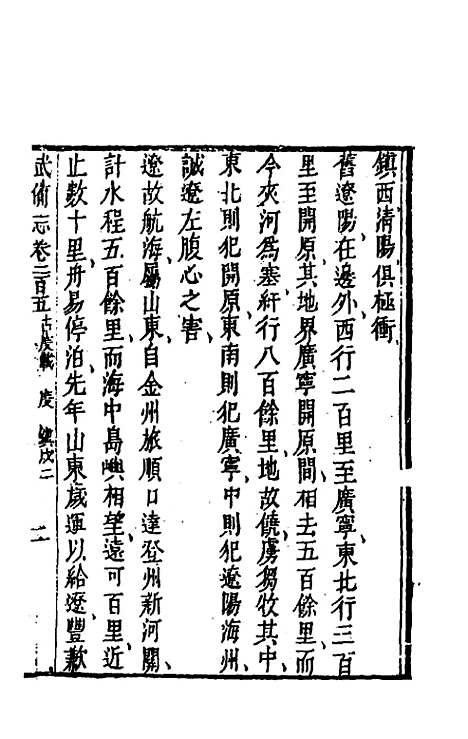 鎮西清陽俱極衝
舊遼陽在邊外西行二百里至廣寧東北行三百
里至開原其地界廣寧開原間相去五百餘里而
今夾河爲塞紆行八百餘里地故饒虜芻牧其中
東北則犯開原東南則犯廣寧中則犯遼陽海州
誠遼左腹心之害
遼故航海屬山東自金州旅順口達登州新河關
計水程五百餘里而海中島嶼相望遠可百里近
止數十里舟易停泊先年山東歲運以給遼豐歉
武備志卷二百五 占度載 度 鎮戍二 二